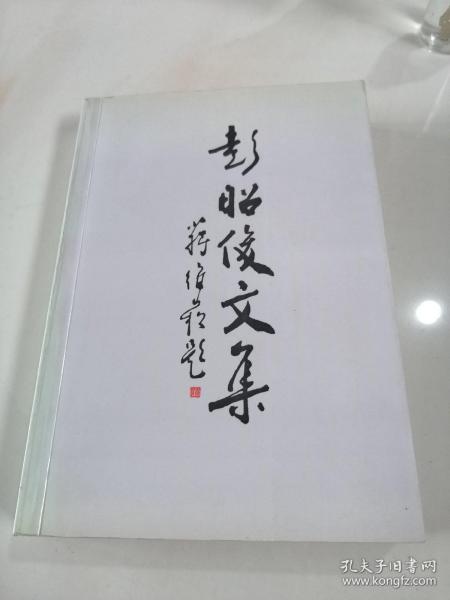 彭昭俊文集
蒋维崧题
孔夫子旧书网
www.kongfz.com